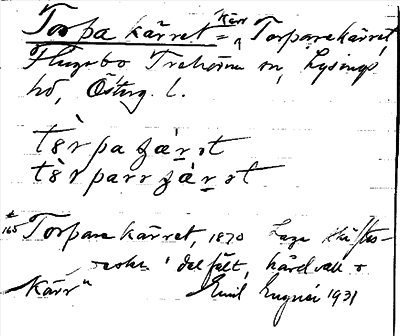 Torpa kärret = Kärr, Torparekärret
Flugebo Trehörna sn, Lysings
hd, Österg. l.
tòrpa ʒárət
tòrparə ʒárət
Torparekärret, 1870 Laga skiftes-
del fält, hårdvall o
kärr" Emil 1931